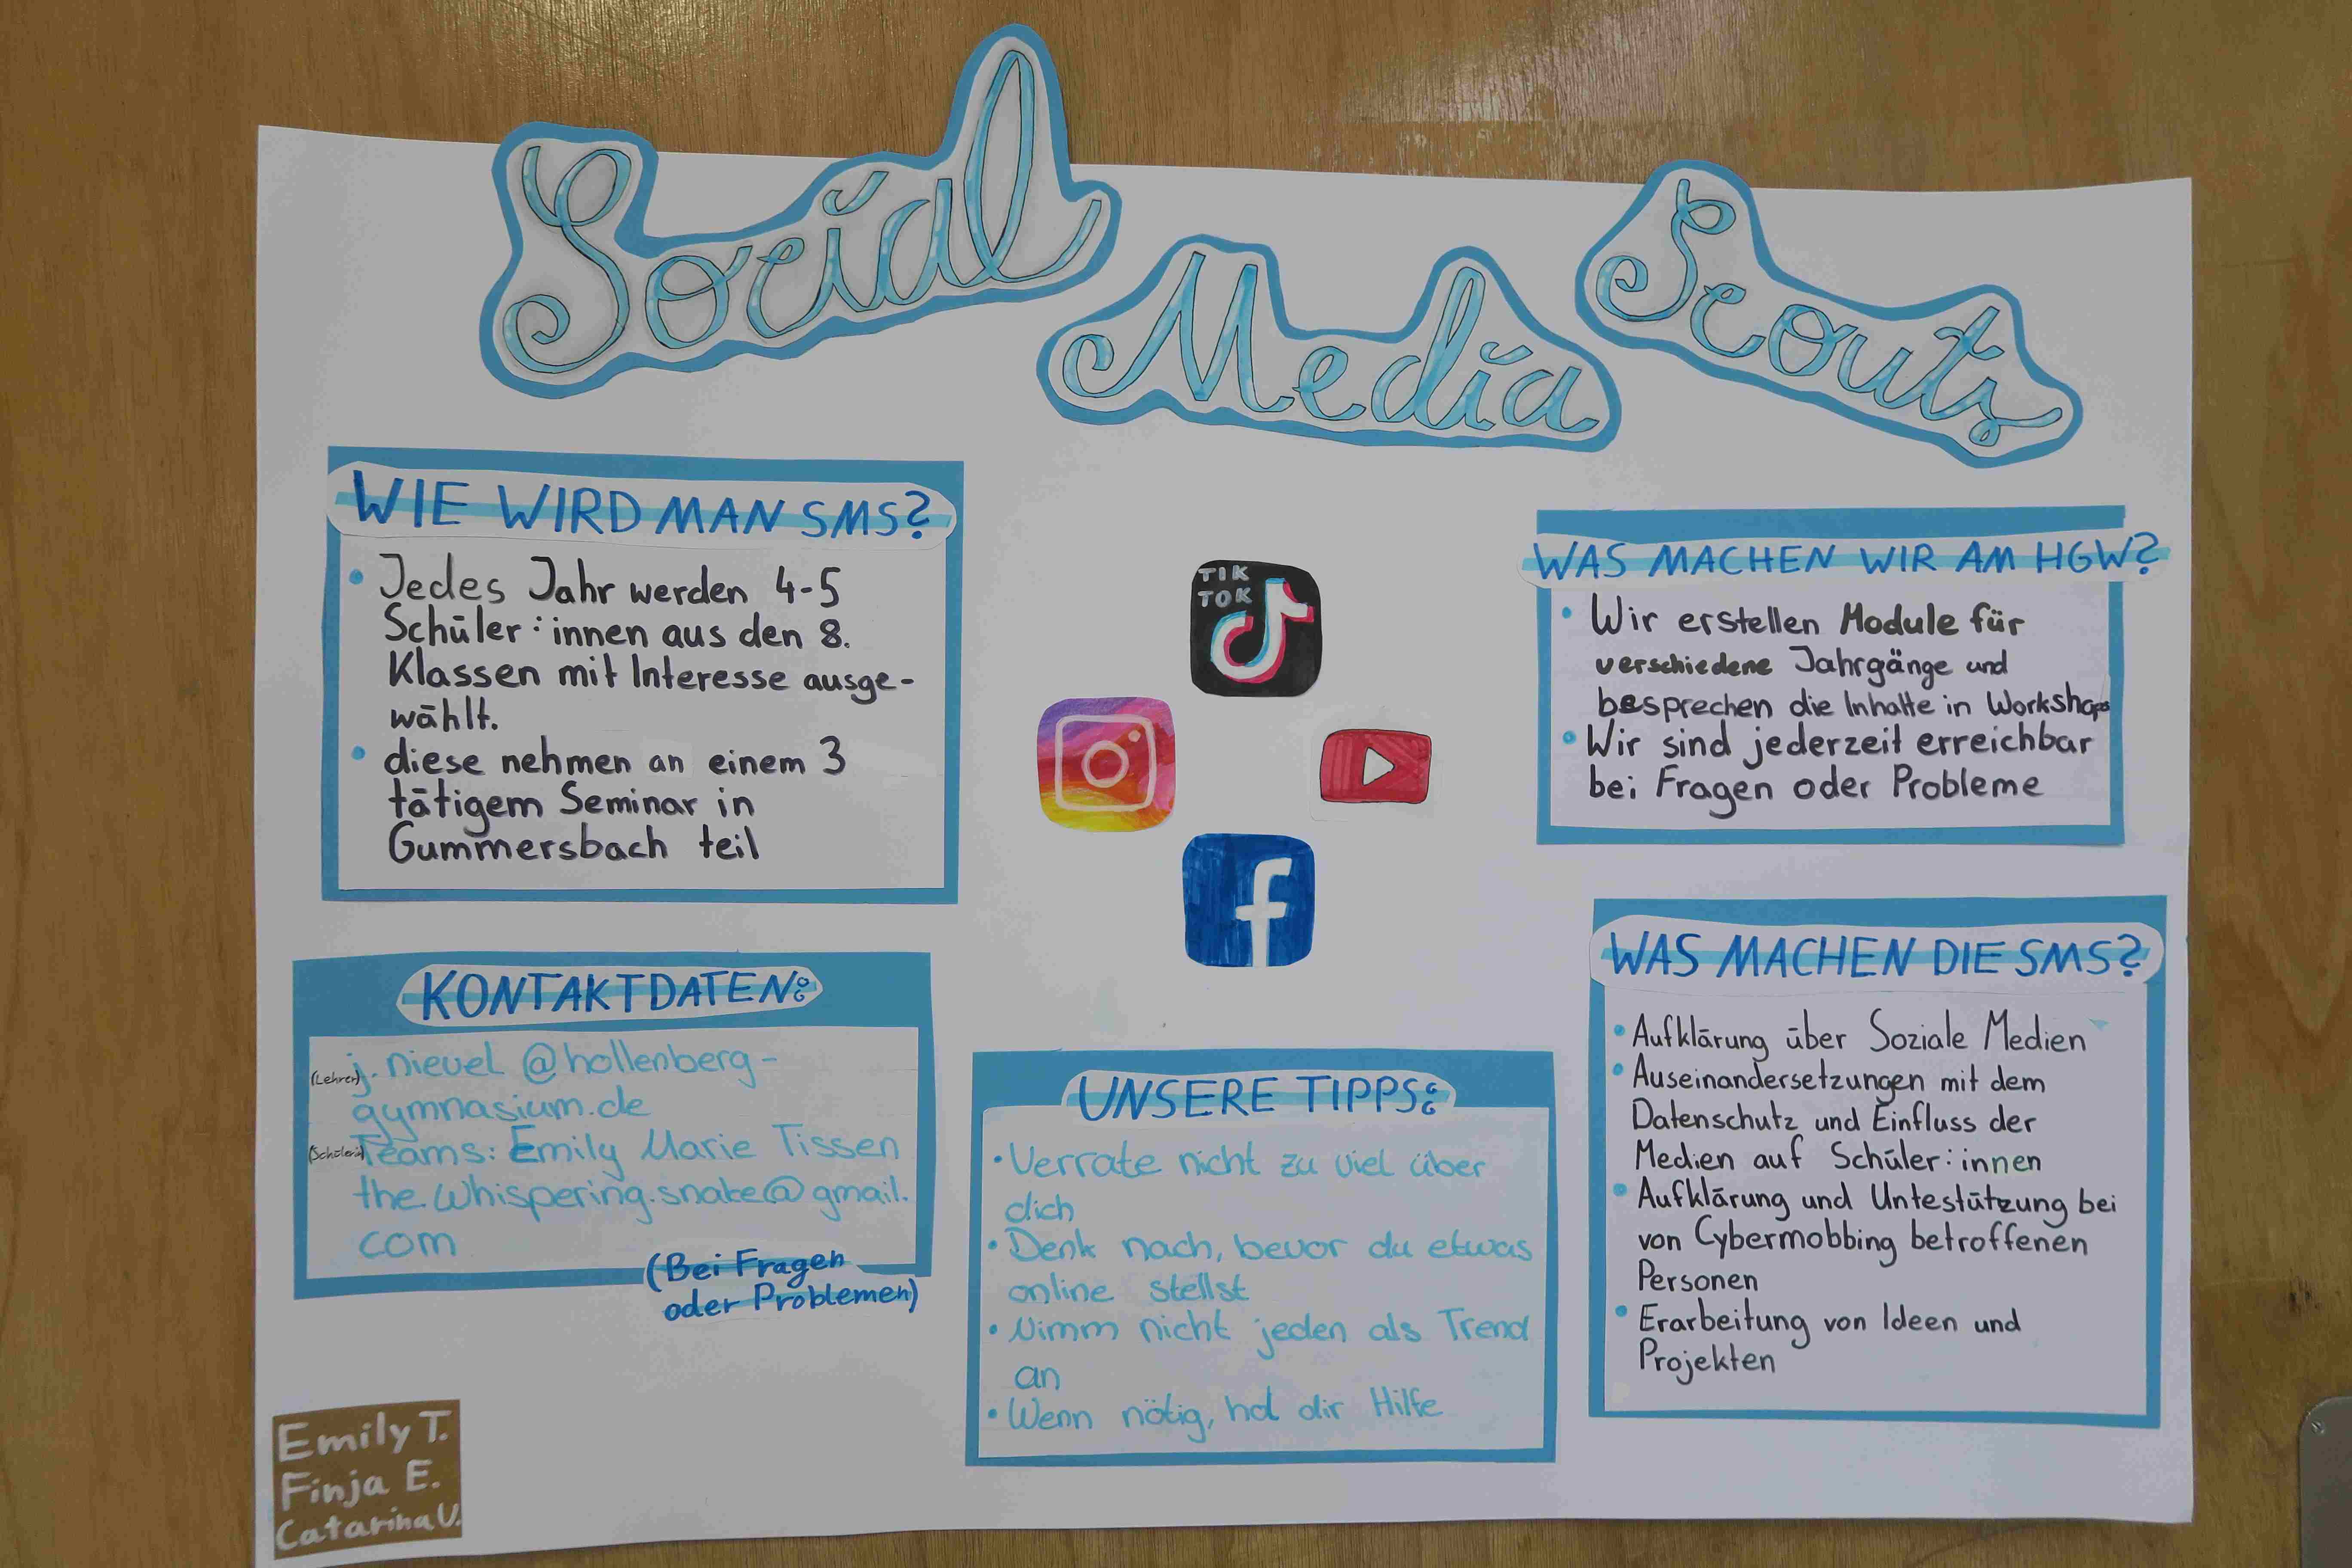 Social
Media
Scouts
WIE WIRD MAN SMS?
• Jedes Jahr werden 4-5
Schüler:innen aus den 8.
Klassen mit Interesse ausge-
wählt.
• diese nehmen an einem 3
tätigem Seminar in
Gummersbach teil
KONTAKTDATEN:
(Lehrer) j.nievel@hollenberg-
gymnasium.de
(Schülerin) Teams: Emily Marie Tissen
the.whispering.snake@gmail.
com
(Bei Fragen
oder Problemen)
Emily T.
Finja E.
Catarina V.
TIK
TOK
UNSERE TIPPS:
• Verrate nicht zu viel über
dich
• Denk nach, bevor du etwas
online stellst
• Nimm nicht jeden als Trend
an
• Wenn nötig, hol dir Hilfe
WAS MACHEN WIR AM HGW?
• Wir erstellen Module für
verschiedene Jahrgänge und
besprechen die Inhalte in Workshops
• Wir sind jederzeit erreichbar
bei Fragen oder Probleme
WAS MACHEN DIE SMS?
• Aufklärung über Soziale Medien
• Auseinandersetzungen mit dem
Datenschutz und Einfluss der
Medien auf Schüler:innen
• Aufklärung und Untestützung bei
von Cybermobbing betroffenen
Personen
• Erarbeitung von Ideen und
Projekten